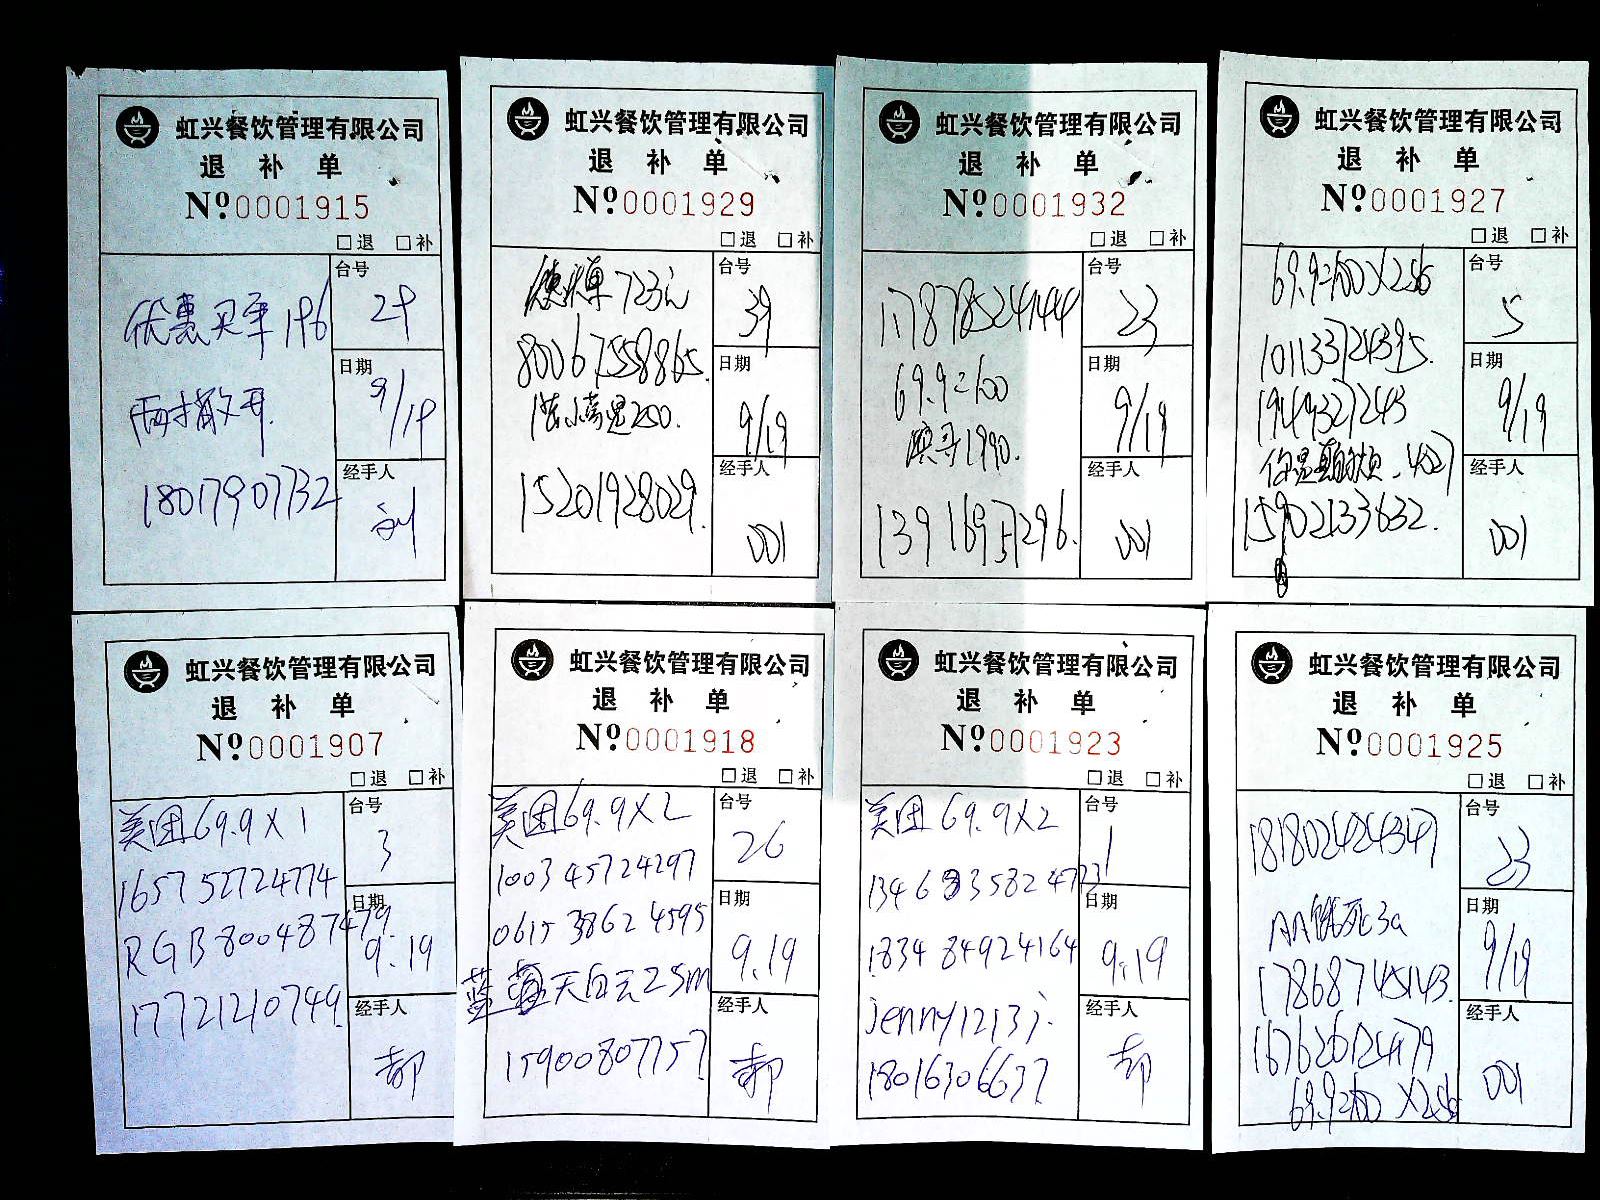 虹兴餐饮管理有限公司
退 补 单
Nº0001915
□退 □补
优惠买单196
18017907732
台号
29
日期
9/19
经手人
刘
虹兴餐饮管理有限公司
退 补 单
Nº0001929
□退 □补
723元
80067558865.
15201928029.
台号
39
日期
9/19
经手人
001
虹兴餐饮管理有限公司
退 补 单
Nº0001932
□退 □补
117878524144
69.9=100
1990.
13916957296.
台号
23
日期
9/19
经手人
001
虹兴餐饮管理有限公司
退 补 单
Nº0001927
□退 □补
69.9=100X2份
101133724395.
1949327243
15902133632.
台号
5
日期
9/19
经手人
001
虹兴餐饮管理有限公司
退 补 单
Nº0001907
□退 □补
美团69.9X1
165752724774
RGB800487479.
17721210749.
台号
3
日期
9.19
经手人
郝
虹兴餐饮管理有限公司
退 补 单
Nº0001918
□退 □补
美团69.9X2
100345724297
061538624595
蓝蓝天白云25m
15900807757
台号
26
日期
9.19
经手人
郝
虹兴餐饮管理有限公司
退 补 单
Nº0001923
□退 □补
美团69.9X2
1346835824723
183484924164
jenny1213j.
18016306637
台号
1
日期
9.19
经手人
郝
虹兴餐饮管理有限公司
退 补 单
Nº0001925
□退 □补
181802424347
17868745143.
167626124179
69.9=100X2份
台号
23
日期
9/19
经手人
001